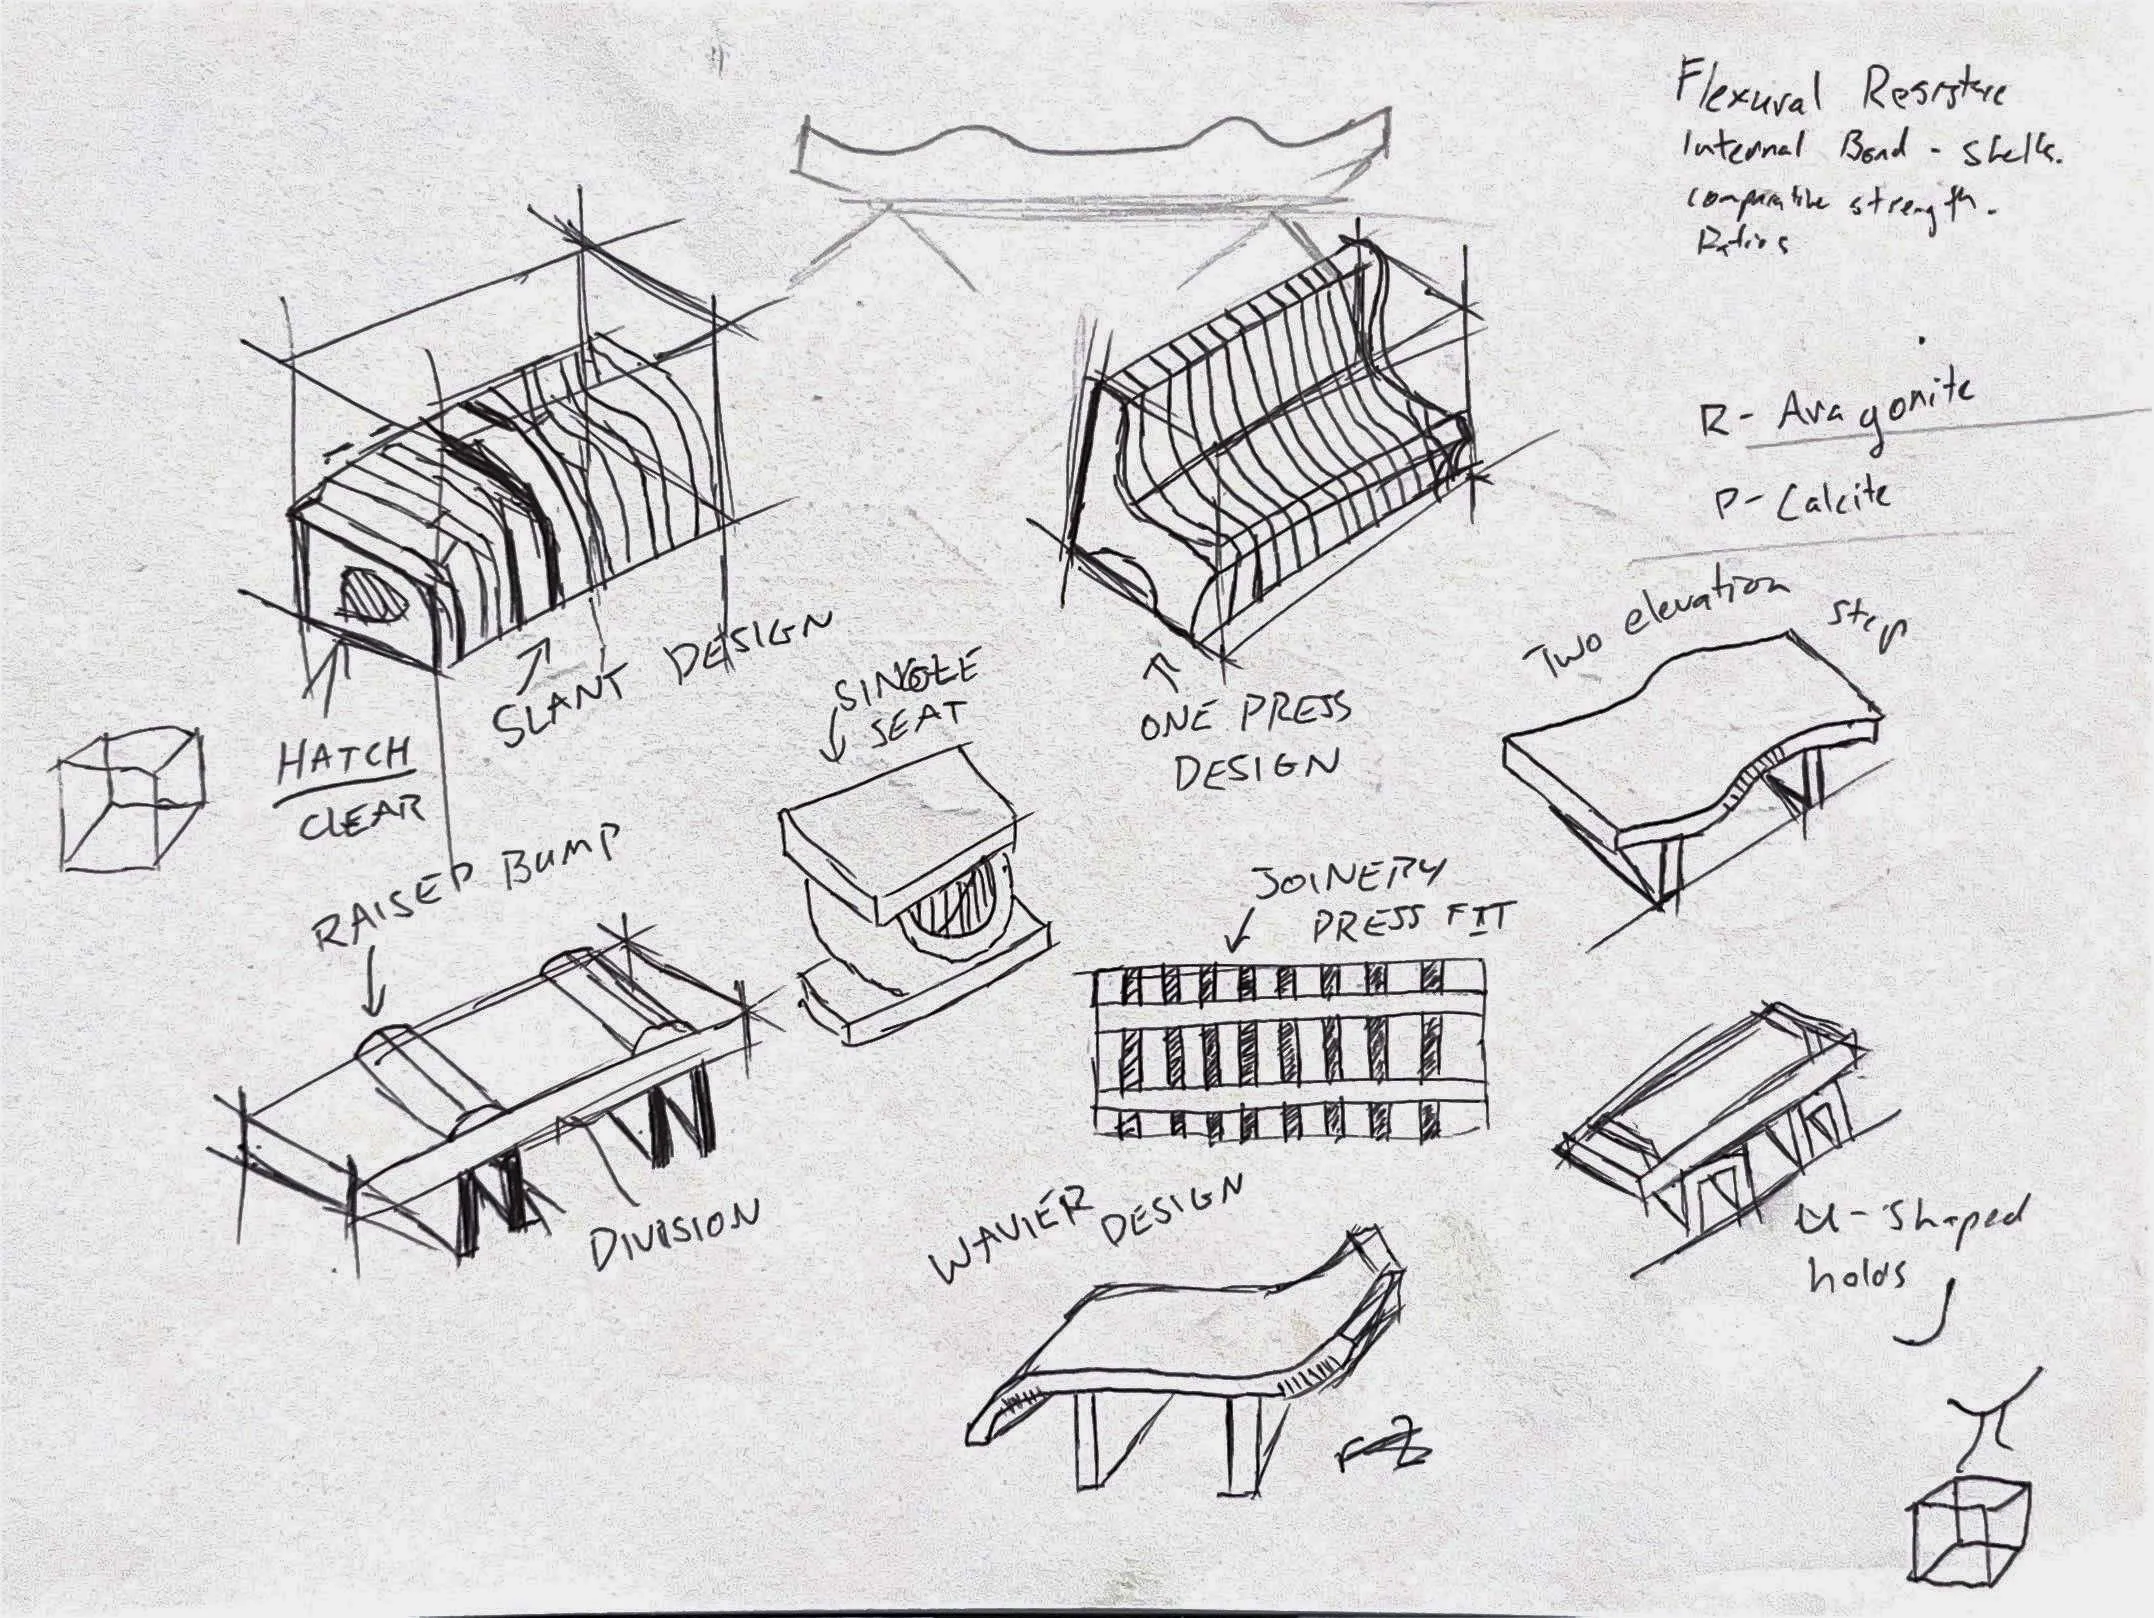 Flexural Resistance
Internal Bond - Shells.
comparative strength.
Ratios
R- Aragonite
P- Calcite
Two elevation step
SLANT DESIGN
HATCH
CLEAR
SINGLE
SEAT
ONE PRESS
DESIGN
RAISED BUMP
JOINERY
PRESS FIT
DIVISION
WAVIER DESIGN
U-Shaped
holds